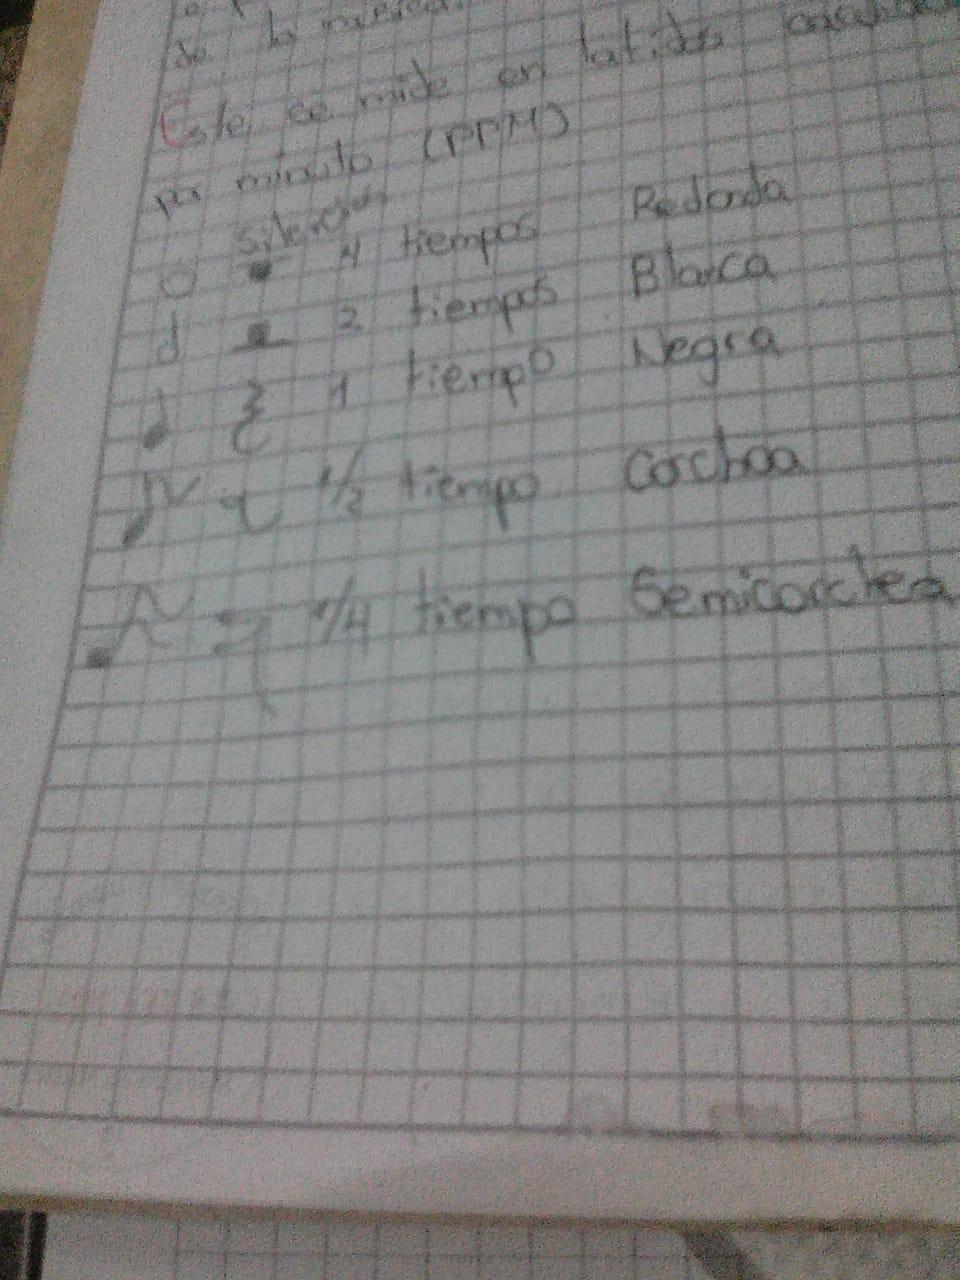 de la música.
Este se mide en latidos
por minuto (PPM)
Silencios
4 tiempos Redonda
2 tiempos Blanca
1 tiempo Negra
1/2 tiempo Corchea
1/4 tiempo Semicorchea